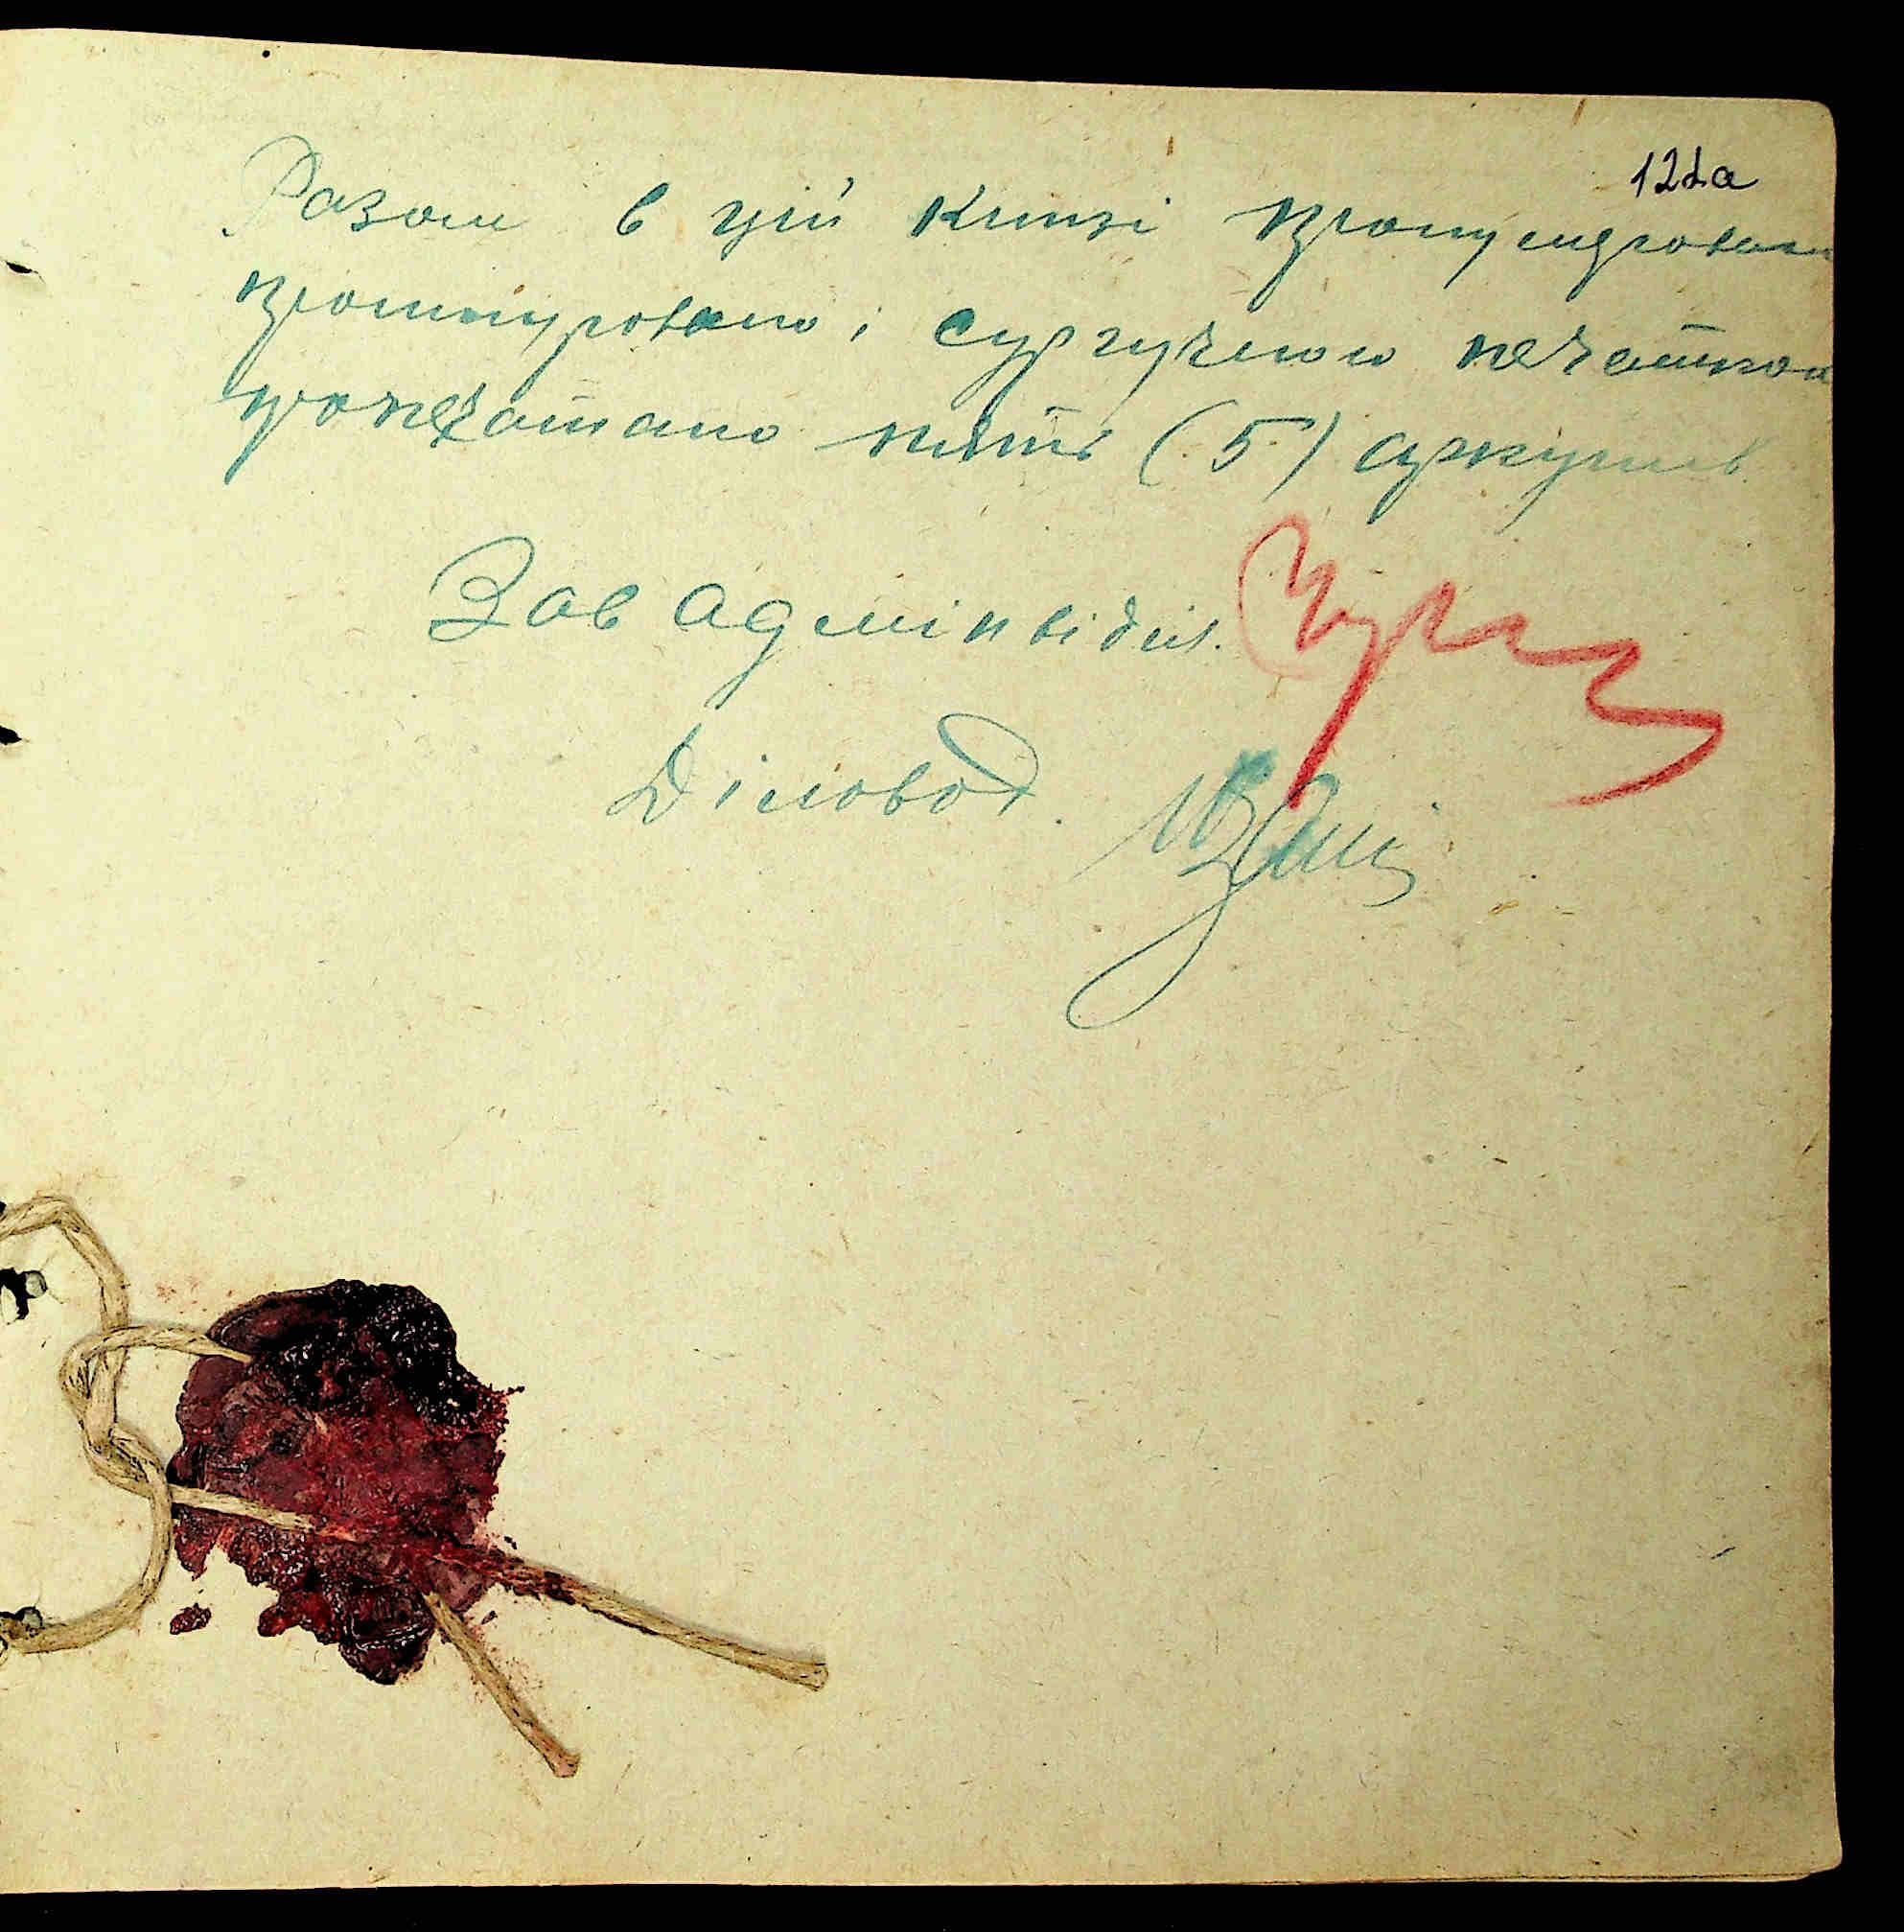 122а
Разом в цій книзі пронумеровано
прошнуровано і сургучною печаткою
пропечатано пять (5) аркушів.
Зав адмінвідділ.
Діловод.